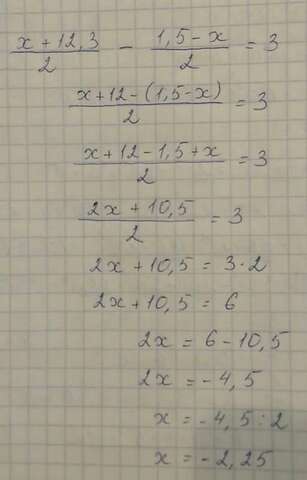 (x + 12,3)/2 - (1,5 - x)/2 = 3
(x + 12 - (1,5 - x))/2 = 3
(x + 12 - 1,5 + x)/2 = 3
(2x + 10,5)/2 = 3
2x + 10,5 = 3 · 2
2x + 10,5 = 6
2x = 6 - 10,5
2x = - 4,5
x = - 4,5 : 2
x = - 2,25